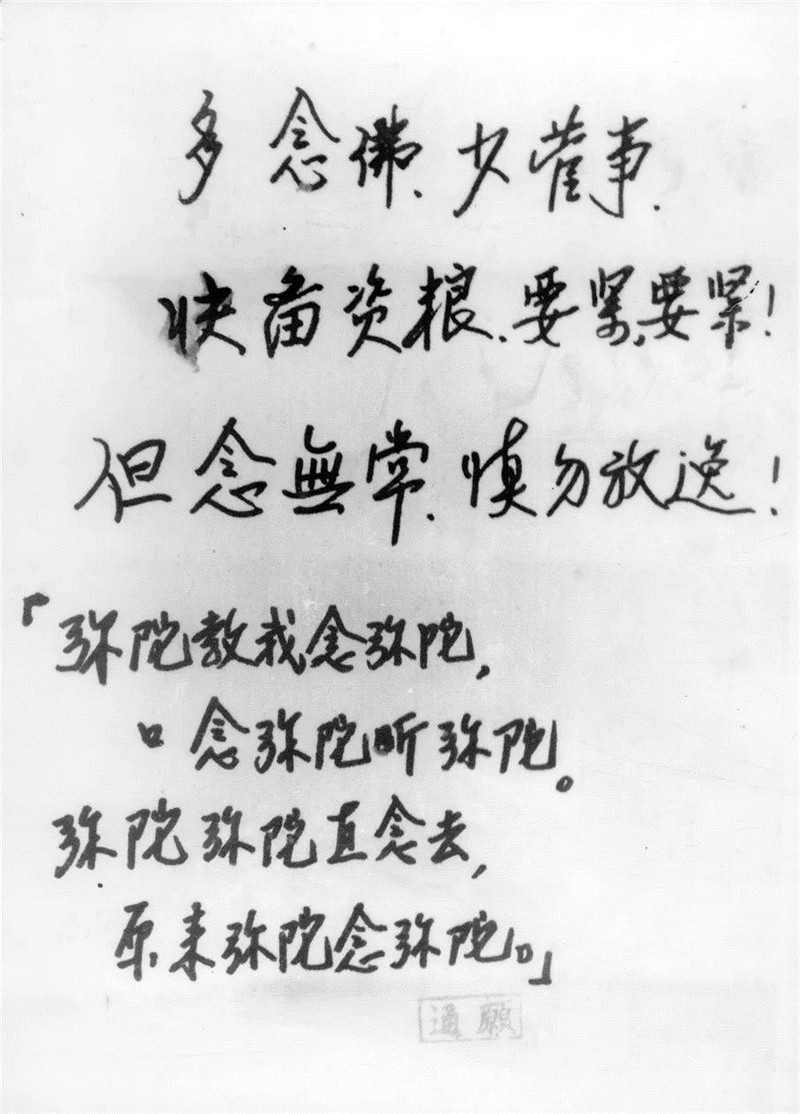 多念佛、少管事、
快备资粮、要紧,要紧！
但念無常、慎勿放逸！
「弥陀教我念弥陀，
口念弥陀听弥陀。
弥陀弥陀直念去，
原来弥陀念弥陀。」
通願